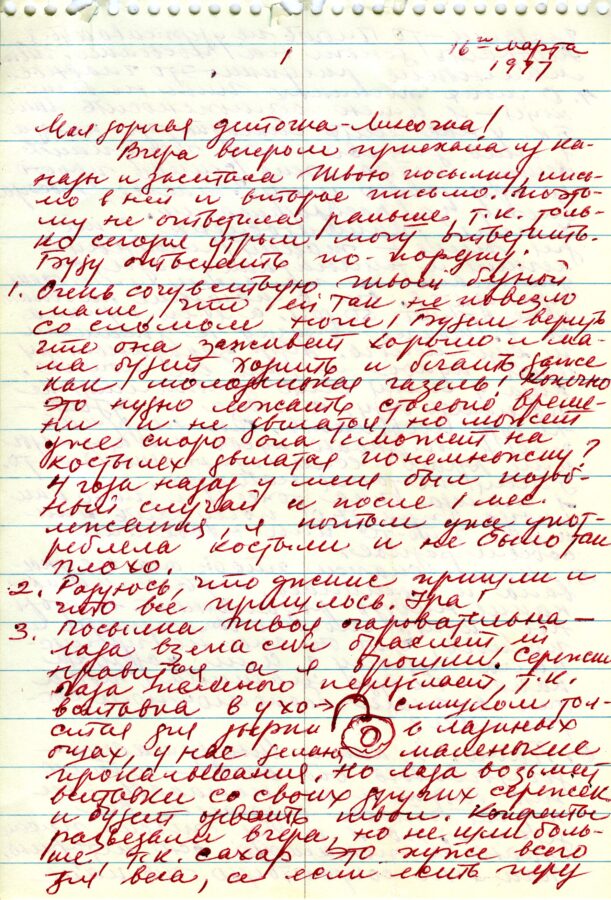 1
16ое марта
1977
Моя дорогая деточка-Лисочка!
Вчера вечером приехала из Ка-
нады и застала Твою посылку, пись-
мо в ней и второе письмо. Поэто-
му не ответила раньше, т.к. толь-
ко сегодня утром могу ответить.
Буду отвечать по-порядку.
1. Очень сочувствую Твоей бедной
маме, что ей так не повезло
со сломом ноги! Будем верить
что она заживет хорошо и ма-
ма будет ходить и бегать даже
как молоденькая газель! Конечно
это нужно лежать столько време-
ни и не двигатся, но может
уже скоро она сможет на
костылях двигатся понемножку?
4 года назад у меня был подоб-
ный случай и после 1 мес.
лежания, я потом уже упот-
ребляла костыли и не было так
плохо.
2. Радуюсь, что джинс пришли и
что все пришлось. Ура!
3. Посылка Твоя очаровательна —
Лада взяла сия браслет ей
нравится а я брошку. Сережки
Лада немного переделает, т.к.
вставка в ухо → слишком тол-
стая для дырки в Ладиных
ушах, у нас делают маленькие
прокалывания. Но Лада возьмет
вставки со своих других сережек
и будет одевать твои. Конфеты
развезали вчера, но не ели боль-
ше, т.к. сахар это хуже всего
для веса, а если есть перу